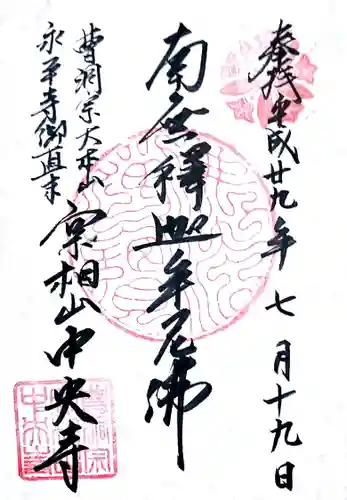 奉拝 平成廿九年 七月十九日
南無釋迦牟尼佛
曹洞宗大本山
永平寺御直末
宗相山中央寺